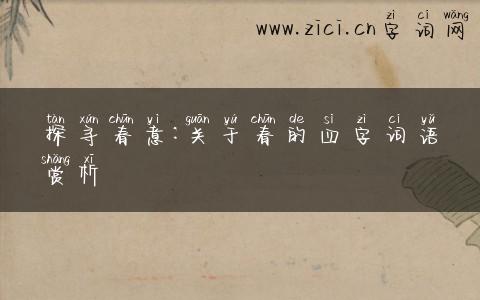 zì cí wǎng
www.zici.cn字词网
tàn xún chūn yì guān yú chūn de sì zì cí yǔ
探寻春意:关于春的四字词语
shǎng xī
赏析